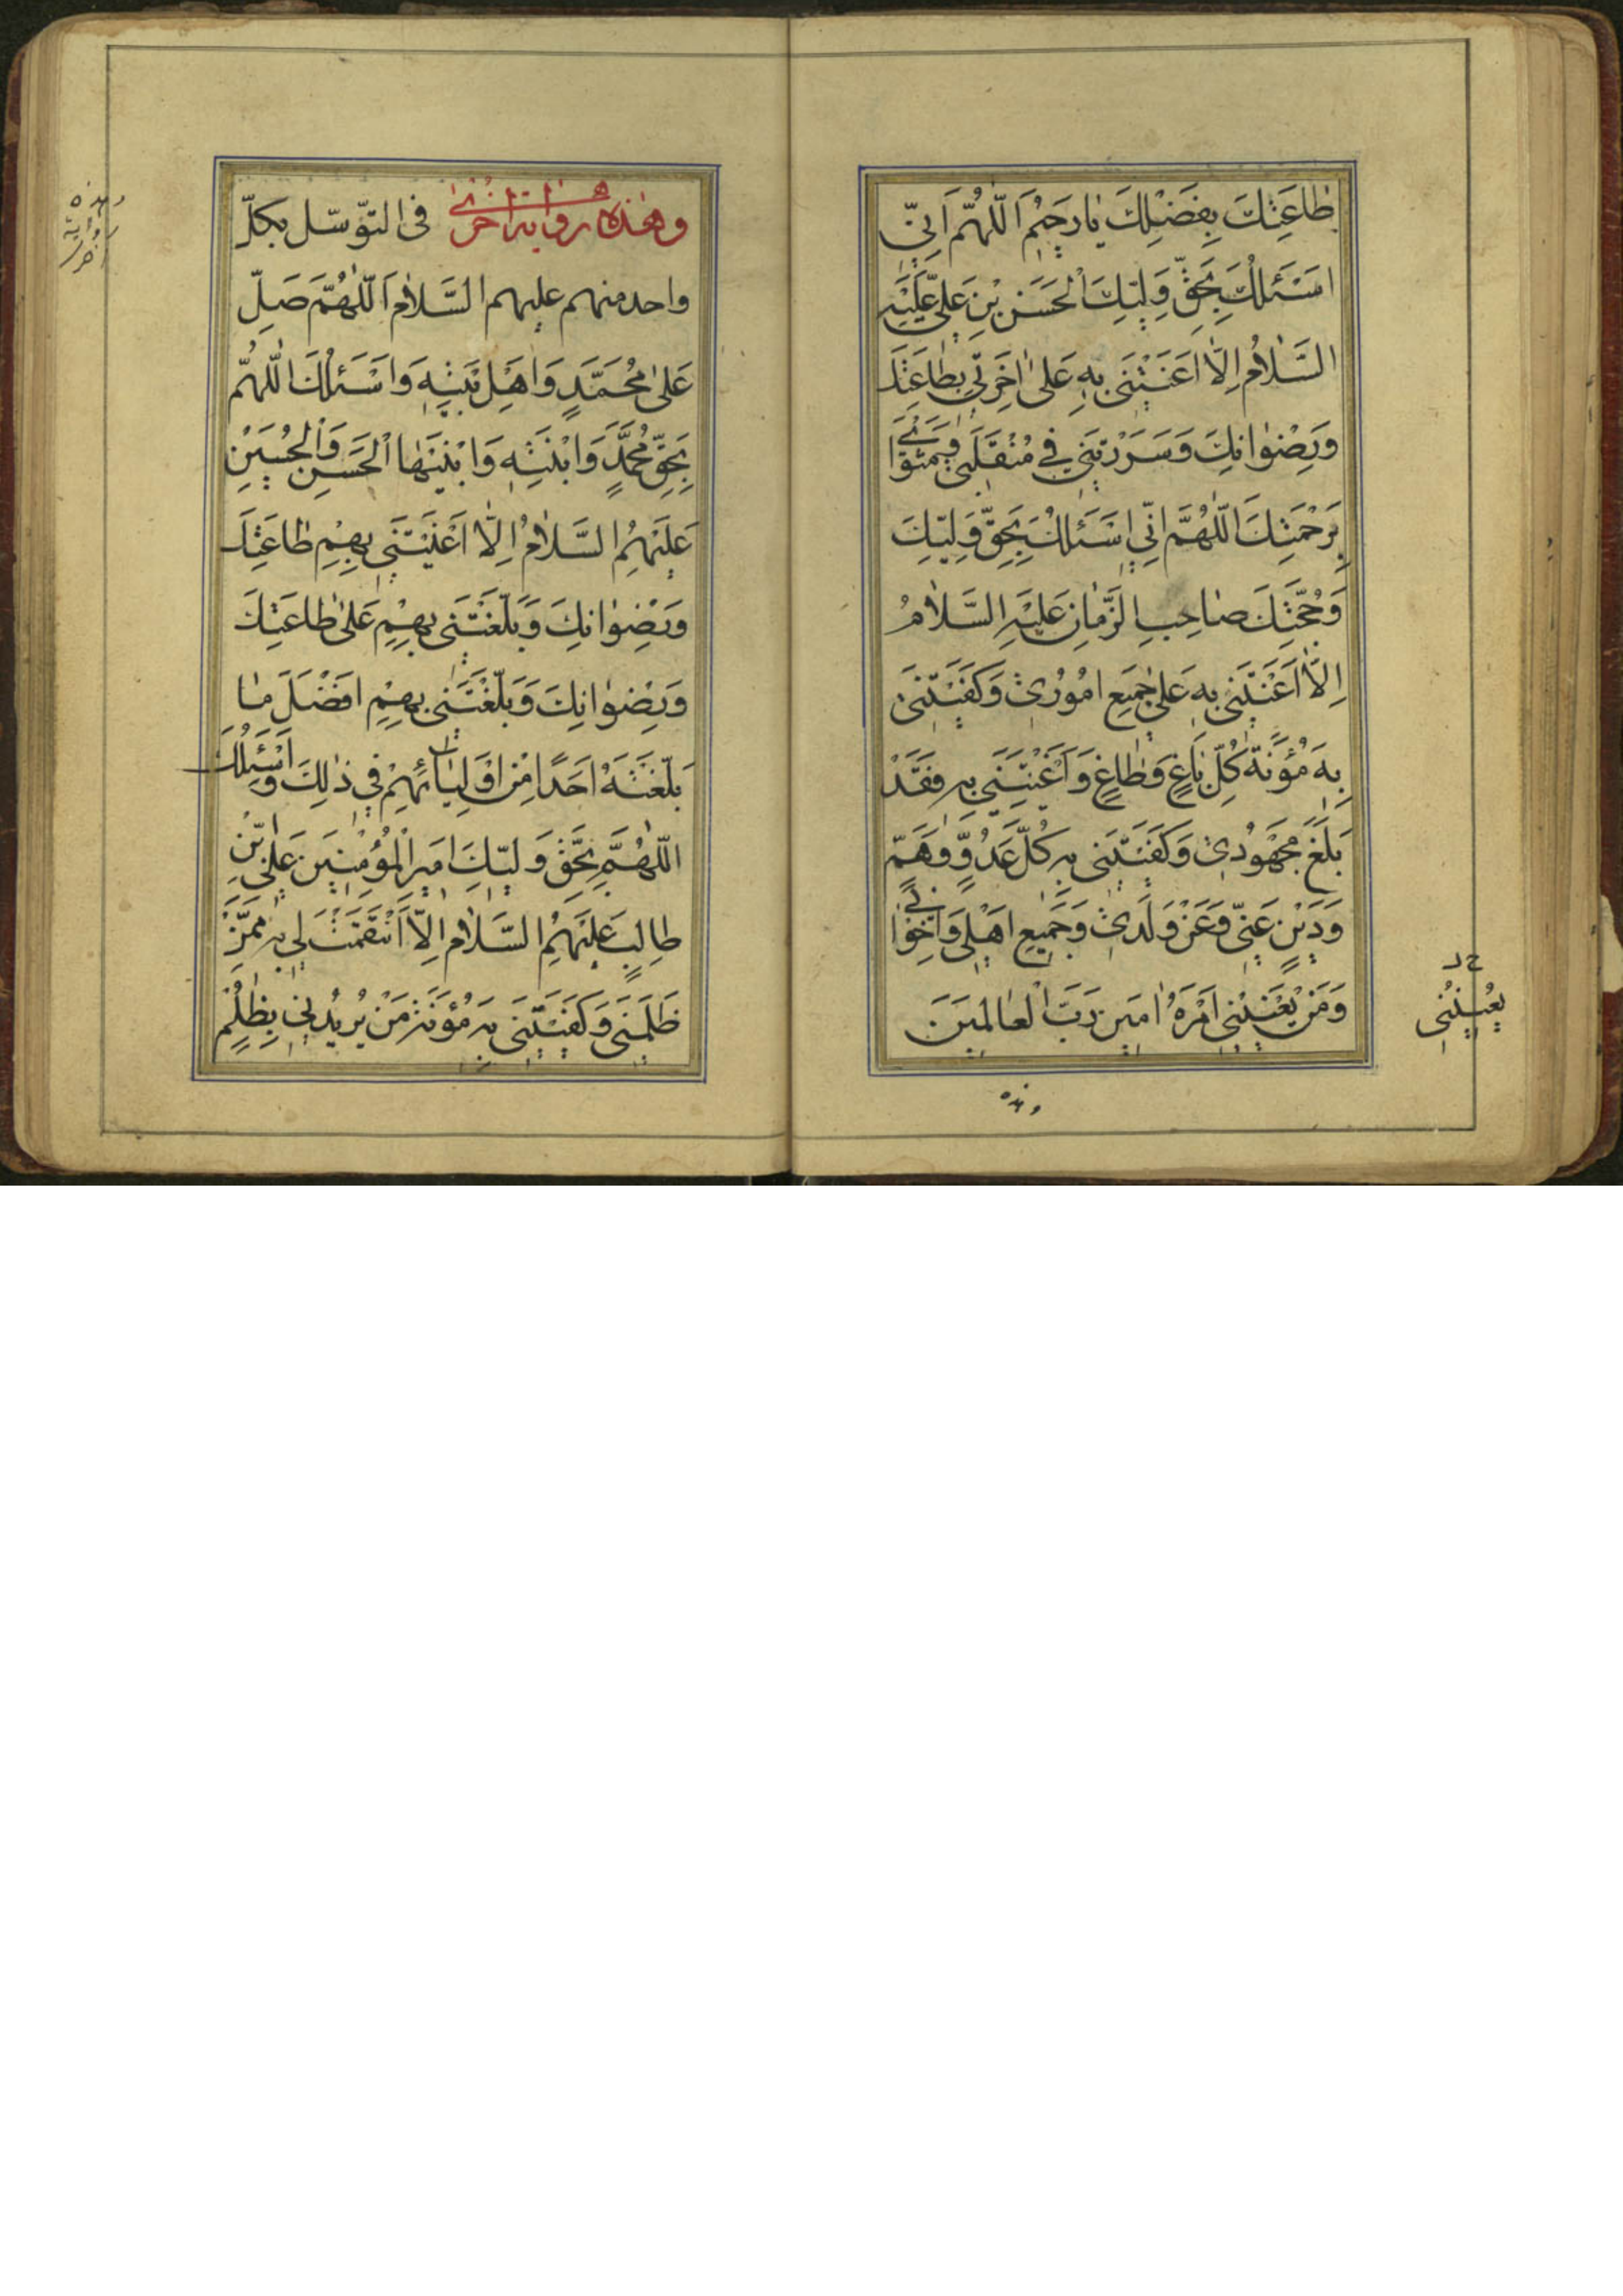 طٰاعَتِكَ بِفَضْلِكَ يٰا رَحيمُ اَللّٰهُمَّ اِنّي
اَسْئَلُكَ بِحَقِّ وَلِيِّكَ الْحَسَنِ بْنِ عَلِيٍّ عَلَيْهِ
السَّلاٰمُ اِلَّا اَعَنْتَني بِهِ عَلىٰ اٰخِرَتي بِطٰاعَتِكَ
وَرِضْوٰانِكَ وَسَرَرْتَني في مُنْقَلَبي وَمَثْوٰايَ
بِرَحْمَتِكَ اَللّٰهُمَّ اِنّي اَسْئَلُكَ بِحَقِّ وَلِيِّكَ
وَحُجَّتِكَ صٰاحِبِ الزَّمٰانِ عَلَيْهِ السَّلاٰمُ
اِلَّا اَعَنْتَني بِهِ عَلىٰ جَميعِ اُمُوري وَكَفَيْتَني
بِهِ مَؤُنَةَ كُلِّ بٰاغٍ وَطٰاغٍ وَاَعَنْتَني بِهِ فَقَدْ
بَلَغَ مَجْهُودي وَكَفَيْتَني بِهِ كُلَّ عَدُوٍّ وَهَمٍّ
وَدَيْنٍ عَنّي وَعَنْ وَلَدي وَجَميعِ اَهْلي وَاِخْوٰاني
وَمَنْ يَعْنيني اَمْرُهُ اٰمينَ رَبَّ الْعٰالَمينَ
يُعيننى
وهذه
وهٰذه رواية اخرىٰ فى التوسّل بكلّ
واحد منهم عليهم السَّلاٰم اَللّٰهُمَّ صَلِّ
عَلىٰ مُحَمَّدٍ وَاَهْلِ بَيْتِهِ وَاَسْئَلُكَ اللّٰهُمَّ
بِحَقِّ مُحَمَّدٍ وَابْنَتِهِ وَابْنَيْهَا الْحَسَنِ وَالْحُسَيْنِ
عَلَيْهِمُ السَّلاٰمُ اِلَّا اَعَنْتَني بِهِمْ طٰاعَتِكَ
وَرِضْوٰانِكَ وَبَلَّغْتَني بِهِمْ عَلىٰ طٰاعَتِكَ
وَرِضْوٰانِكَ وَبَلَّغْتَني بِهِمْ اَفْضَلَ مٰا
بَلَّغْتَهُ اَحَدًا مِنْ اَوْلِيٰائِهِمْ في ذٰلِكَ وَاَسْئَلُكَ
اللّٰهُمَّ بِحَقِّ وَلِيِّكَ اَميرِ الْمُؤْمِنينَ عَلِيِّ بْنِ
طٰالِبٍ عَلَيْهِمُ السَّلاٰم اِلَّا انْتَقَمْتَ لي بِهِ مِمَّنْ
ظَلَمَني وَكَفَيْتَني بِهِ مَؤُنَةَ مَنْ يُريدُني بِظُلْمٍ
وهذه
رواية
اخرى